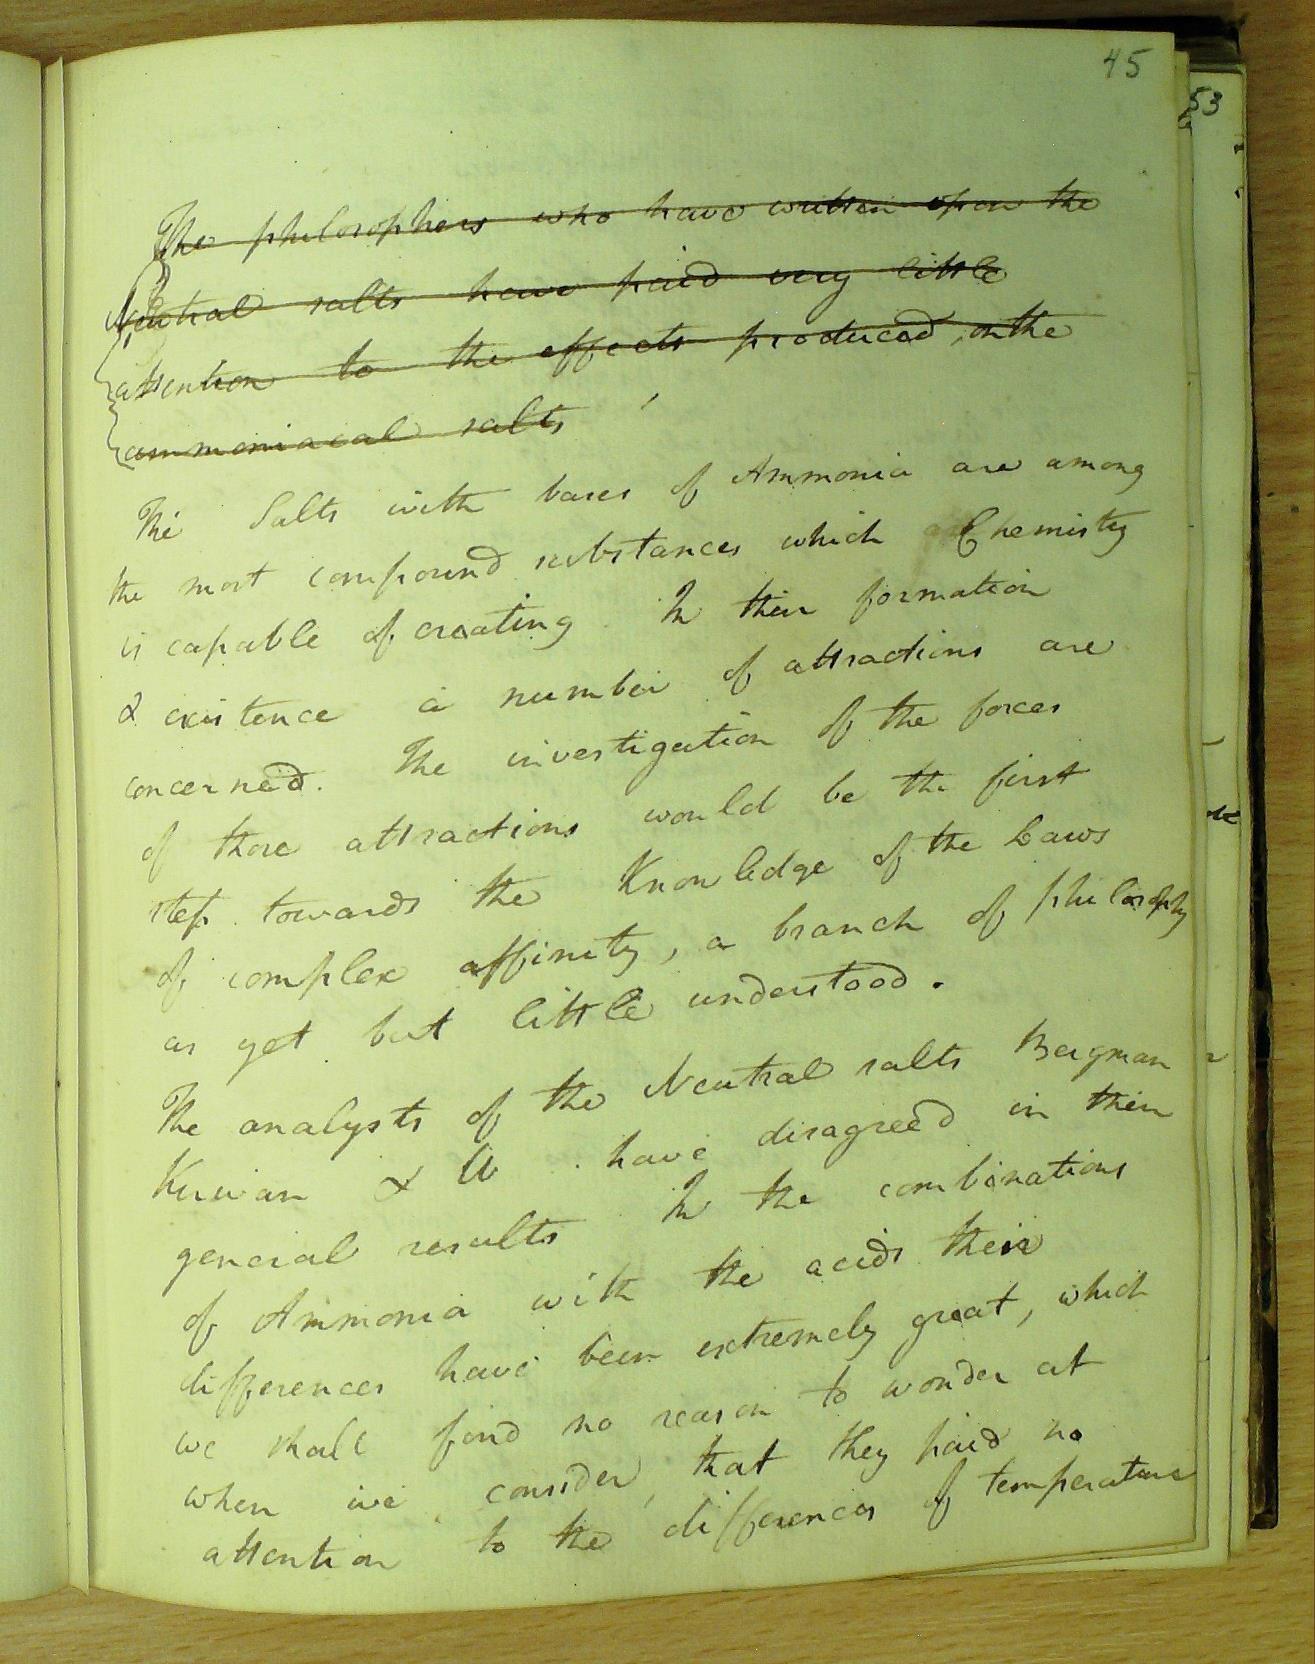 45
53
The philosophers who have written upon the
Neutral salts have paid very little
attention to the effects produced, on the
ammoniacal salts
The Salts with bases of Ammonia are among
the most compound substances which Chemistry
is capable of creating. In their formation
& existence a number of attractions are
concerned. The investigation of the forces
of those attractions would be the first
step towards the Knowledge of the Laws
of complex affinity, a branch of philosophy
as yet but little understood.
The analysts of the Neutral salts Bergman
Kirwan & have disagreed in their
general results In the combinations
of Ammonia with the acids their
differences have been extremely great, which
we shall find no reason to wonder at
when we consider, that they paid no
attention to the differences of temperature